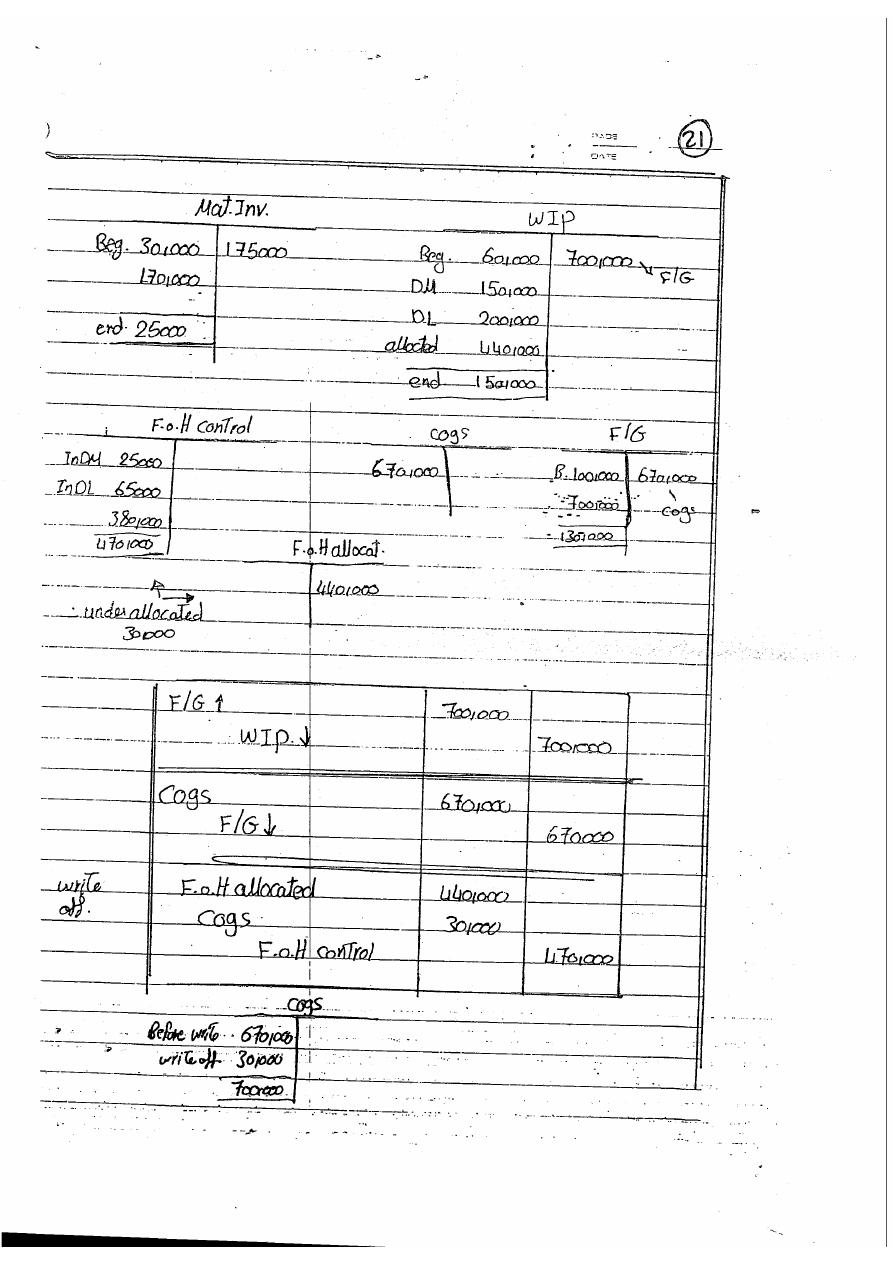 PAGE
21
DATE
Mat. Inv.
Beg. 30,000 175000
170,000
end. 25000
WIP
Beg. 60,000 700,000 F/G
DM 150,000
DL 200,000
allocted 440,000
end 150,000
F.o.H Control
InDM 25000
InDL 65000
380,000
470,000
cogs
670,000
F/G
B. 100,000 670,000
700,000 cogs
130,000
F.o.H allocat.
440,000
under allocated
30,000
F/G ↑ 700,000
WIP. ↓ 700,000
Cogs 670,000
F/G ↓ 670,000
write off.
F.o.H allocated 440,000
Cogs 30,000
F.o.H control 470,000
cogs
Before write 670,000
write off 30,000
700,000